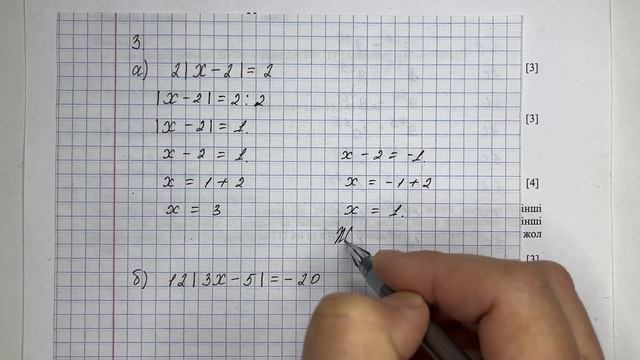 3.
а) 2|x-2|=2
|x-2|=2:2
|x-2|=1.
x-2=1.
x=1+2
x=3
x-2=-1.
x=-1+2
x=1.
б) 12|3x-5|=-20
[3]
[3]
[4]
інші
інші
жол
[3]